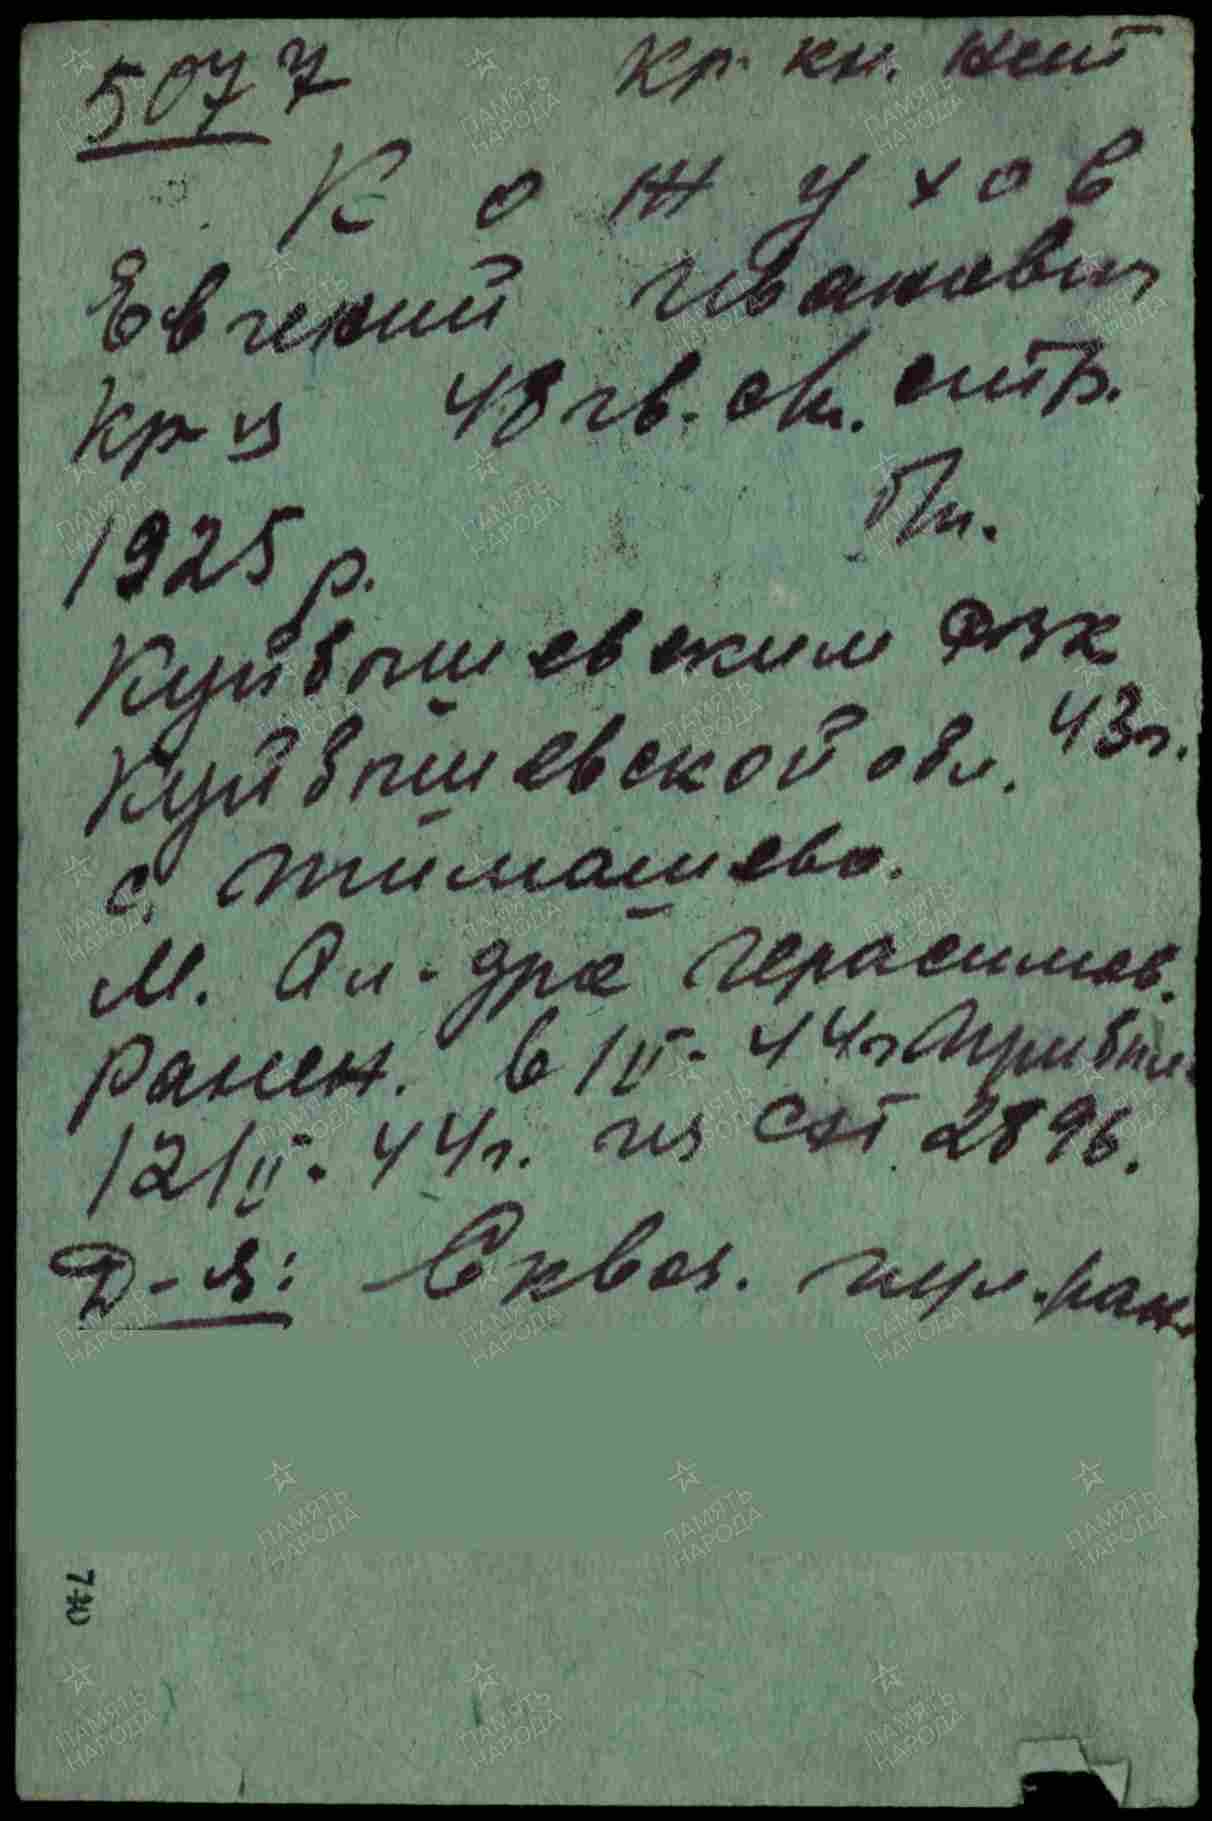 5077 Кр. кн. нет
Кожухов
Евгений Иванович
Кр-ц 48 гв. сп. стр.
1925 р. Пп.
Куйбышевским РВК
Куйбышевской обл. 43 г.
с. Тимашево.
М. Ал-дра Герасимов.
Ранен. 6/II-44 г. Прибыл
12/II-44 г. из СЭГ 2896.
Д-з: Сквоз. пул. ран.